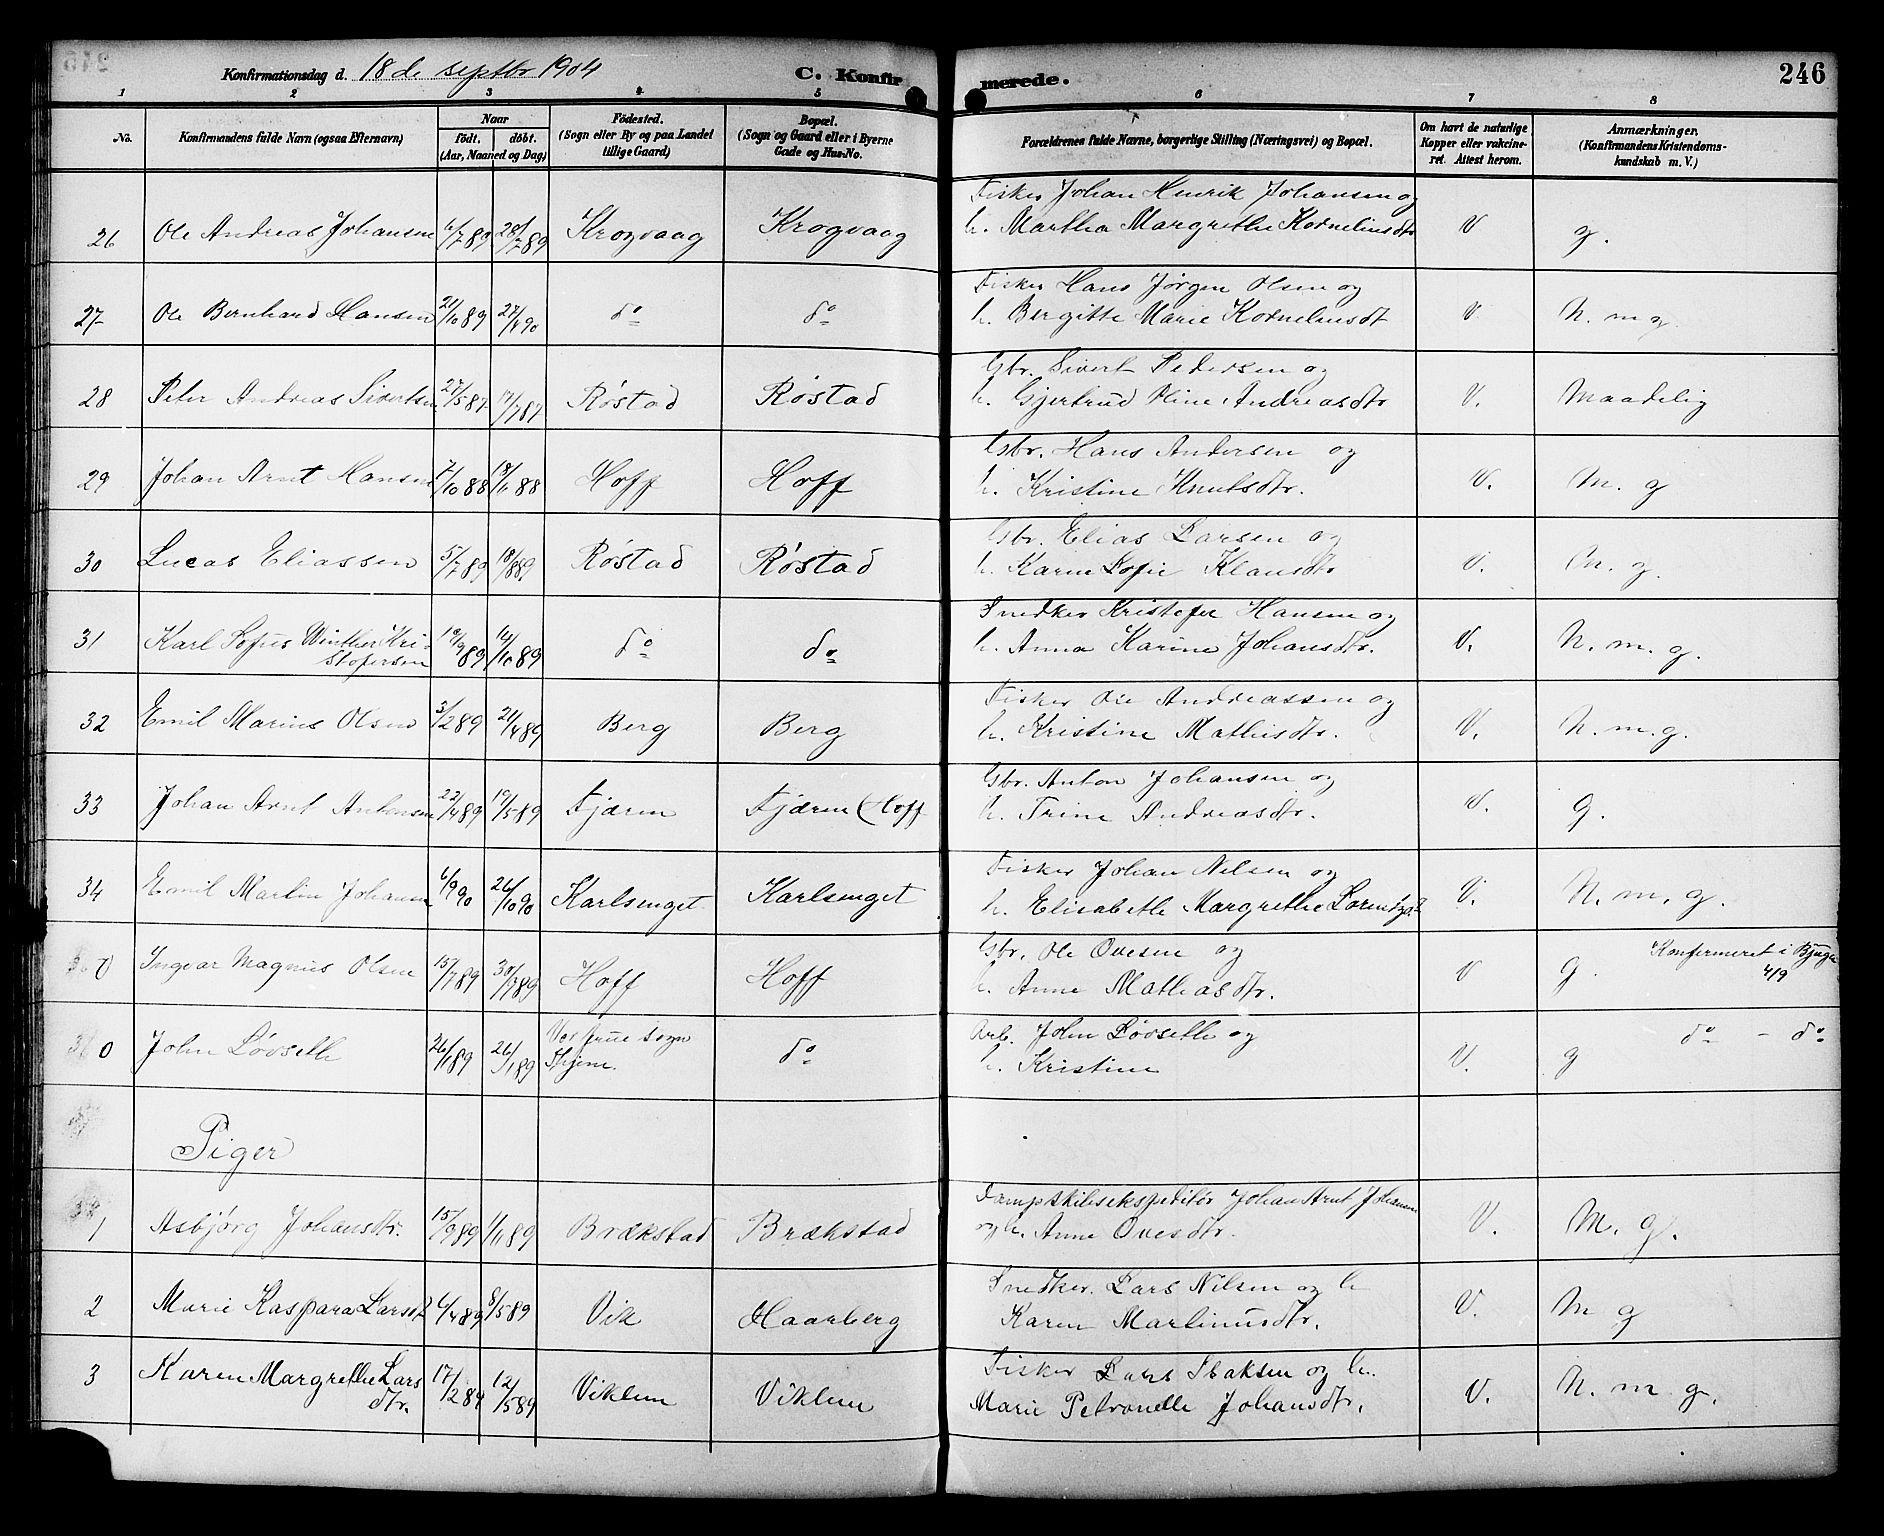 Konfirmationsdag d. 18de septbr 1904 C. Konfirmerede. 246
1 2 3 4 5 6 7 8
No. Konfirmandens fulde Navn (ogsaa Efternavn) Naar født. døbt. (Aar, Maaned og Dag) Fødested. (Sogn eller By og paa Landet tillige Gaard) Bopæl. (Sogn og Gaard eller i Byerne Gade og Hus-No. Forældrenes fulde Navne, borgerlige Stilling (Næringsvei) og Bopæl. Om havt de naturlige Kopper eller vakcineret. Attest herom. Anmærkninger. (Konfirmandens Kristendomskundskab m. V.)
Fisker Johan Henrik Johansen og
26 Ole Andreas Johansen 6/7 89 28/7 89 Krogvaag Krogvaag h. Martha Margrethe Korneliusdtr V g.
Fisker Hans Jørgen Olsen og
27 Ole Bernhard Hansen 21/10 89 do do h. Bergitte Marie Korneliusdt V. N. m g.
Gbr. Sivert Pedersen og
28 Peter Andreas Sivertsen 27/5 87 17/7 87 Røstad Røstad h. Gjertrud Oline Andreasdtr V. Maadelig
Gbr. Hans Andersen og
29 Johan Arnt Hansen 7/10 88 18/11 88 Hoff Hoff h. Kristine Knutsdtr. V. M. g
Gbr. Elias Larsen og
30 Lucas Eliassen 5/7 89 18/8 89 Røstad Røstad h. Karen Sofie Klausdtr V. M. g.
Snedker Kristofer Hansen og
31 Karl Sofus Winther Kri-
stofersen 89 14/10 89 do do h. Anna Karine Johansdtr. V. N. m. g.
Fisker Ole Andreassen og
32 Emil Marius Olsen 3/2 89 21/4 89 Berg Berg h. Kristine Mathisdtr. V. N. m. g.
Gbr. Anton Johansen og
33 Johan Arnt Antonsen 22/4 89 19/5 89 Fjæren Fjæren (Hoff h. Trine Andreasdtr. V. g.
Fisker Johan Nilsen og
34 Emil Martin Johansen 6/9 90 26/10 90 Karlsenget Karlsenget h. Elisabeth Margrethe Lorentsdt V. N. m. g.
Gbr. Ole Ovesen og
0 Ingvar Magnus Olsen 15/7 89 30/7 89 Hoff Hoff h. Anne Mathiasdtr. V g Konfirmeret i Bjugn 4/9
Arb. John Løvseth og
0 John Løvseth 26/1 89 26/1 89 Vor frue sogn
Thjem. do h. Kristine V. g do - do
Piger
Dampskibsekspeditør Johan Arnt Johansen
1 Asbjørg Johansdtr. 15/9 89 1/11 89 Brækstad Brækstad og h. Anne Ovesdtr. V. M. g.
Snedker. Lars Nilsen og h
2 Marie Kaspara Larsdt 6/4 89 8/5 89 Vik Haarberg Karen Martinusdtr. V. M g
Fisker Lars Isaksen og h.
3 Karen Margrethe Lars
dtr. 17/2 89 12/5 89 Viklem Viklem Marie Petronelle Johansdtr. V. N. m g.